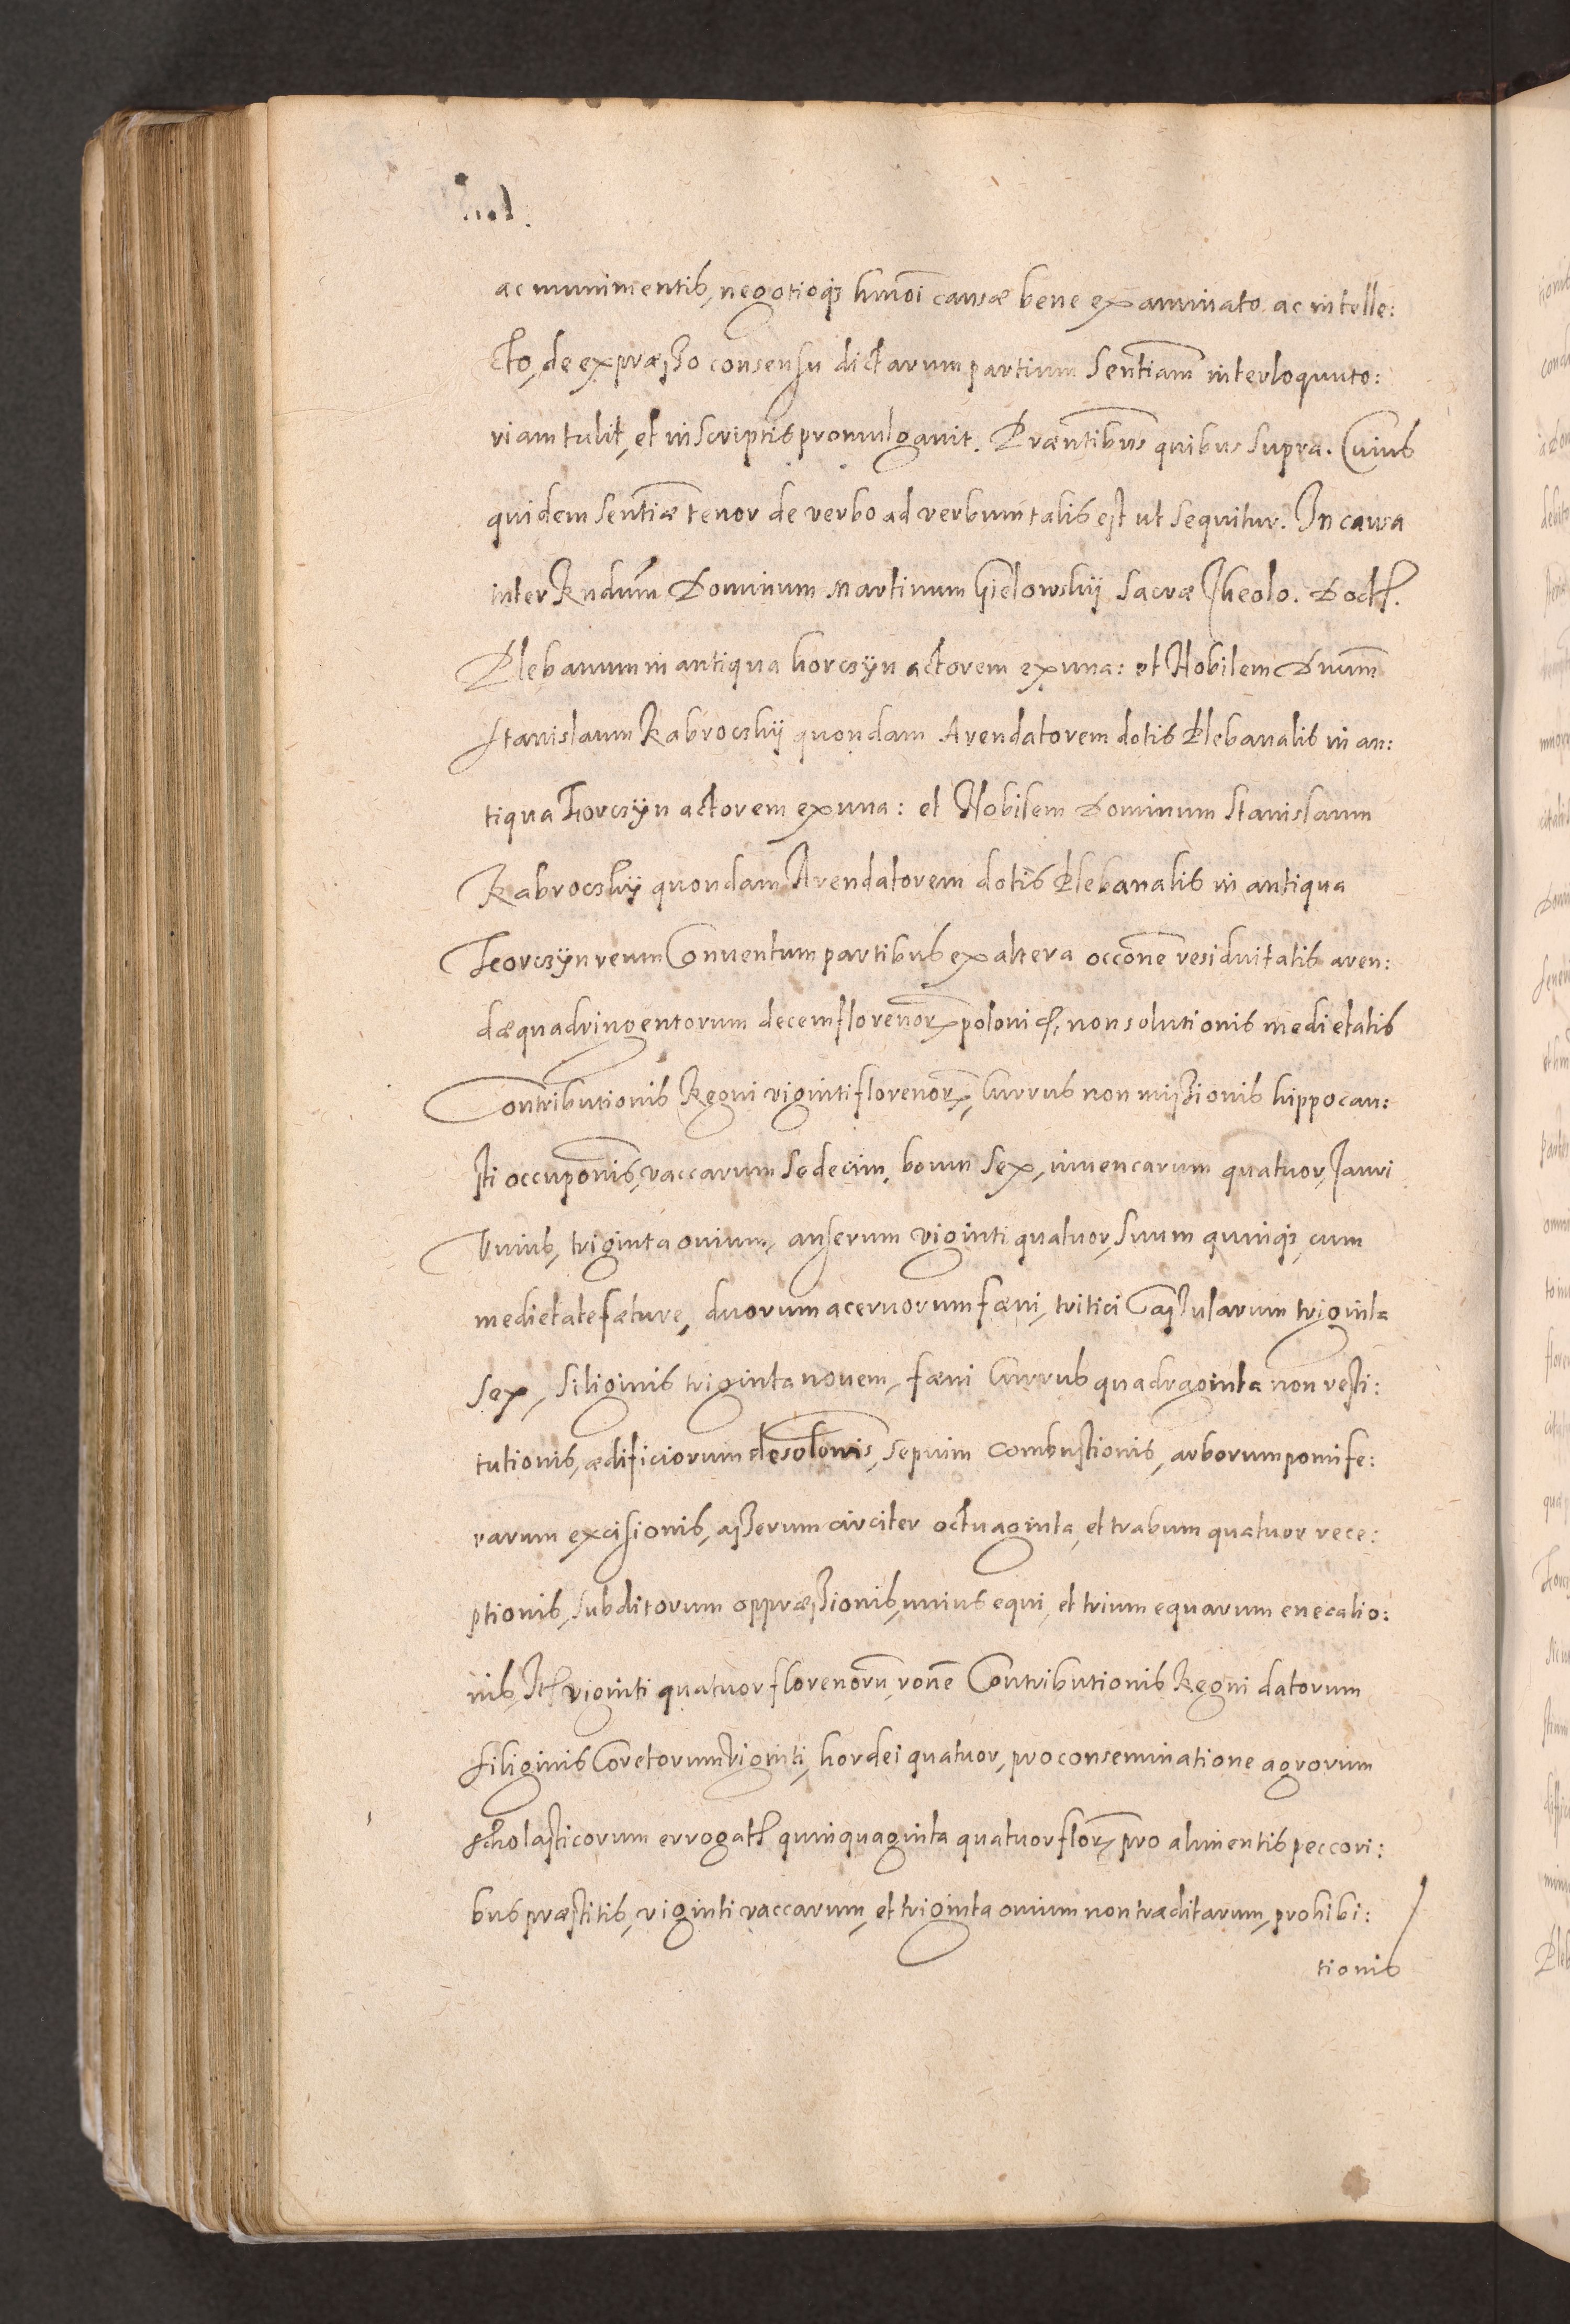 ac munimentis, negotioq3 hmoi causæ bene examinato ac intelle:
cto, de expræsso consensu dictarum partium Sentiam interloquuto:
riam tulit, et in scriptis promulgauit. Præntibus quibus supra. Cuius
quidem sentiæ tenor de verbo ad verbum talis est ut sequitur. In causa
inter Rndum Dominum Martinum Gielowskij Sacræ Theolo. Doct.
Plebanum in antiqua horcsÿn actorem ex una: et Nobilem Dnum
Stanislaum Kabrocskij quondam Arendatorem dotis Plebanalis in an:
tiqua Horcsÿn actorem ex una: et Nobilem Dominum Stanislaum
Kabrocskij quondam Arendatorem dotis Plebanalis in antiqua
Teorcsÿn reum Conuentum partibus ex altera occone residuitatis aren:
dæ quadringentorum decem florenor polonic, non solutionis medietatis
Contributionis Regni viginti florenor, Currus non missionis hippocau:
sti occuponis, vaccarum sedecim, boum sex, iuuencarum quatuor, Tauri
Vnius, triginta ouium, anserum viginti quatuor, Suum quinq3, cum
medietate fæture, duorum aceruorum fæni, tritici Cassularum triginta
sex, siliginis triginta nouem, fæni Currus quadraginta non resti:
tutionis, ædificiorum desolonis, sepium combustionis, arborum pomife:
rarum excisionis, asserum circiter octuaginta, et trabum quatuor rece:
ptionis, subditorum oppræssionis, unius equi, et trium equarum enecatio:
nis, It viginti quatuor florenoru rone Contributionis Regni datorum
Siliginis Coretorum viginti, hordei quatuor, pro conseminatione agrorum
scholasticorum errogat quinquaginta quatuor flor pro alimentis peccori:
bus præstitis, viginti vaccarum, et triginta ouium non traditarum, prohibi:
tionis